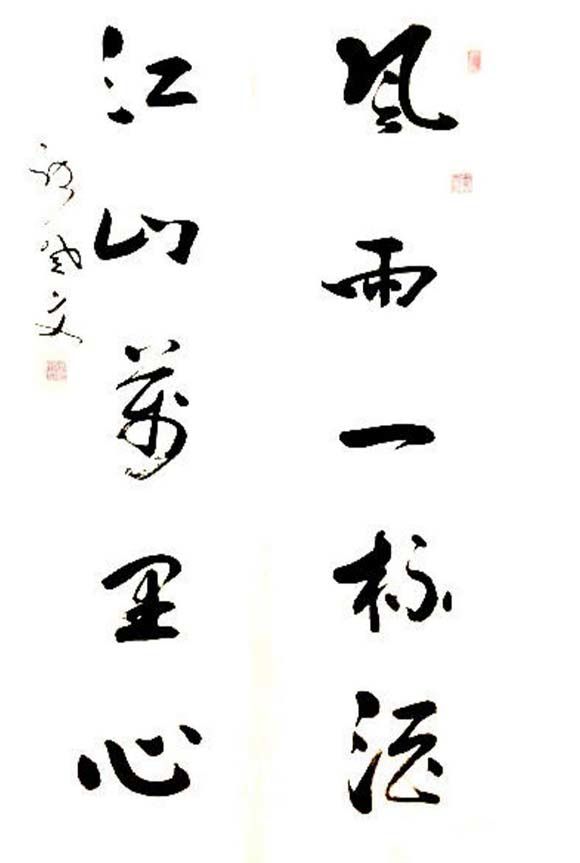 風雨一杯酒
江山萬里心